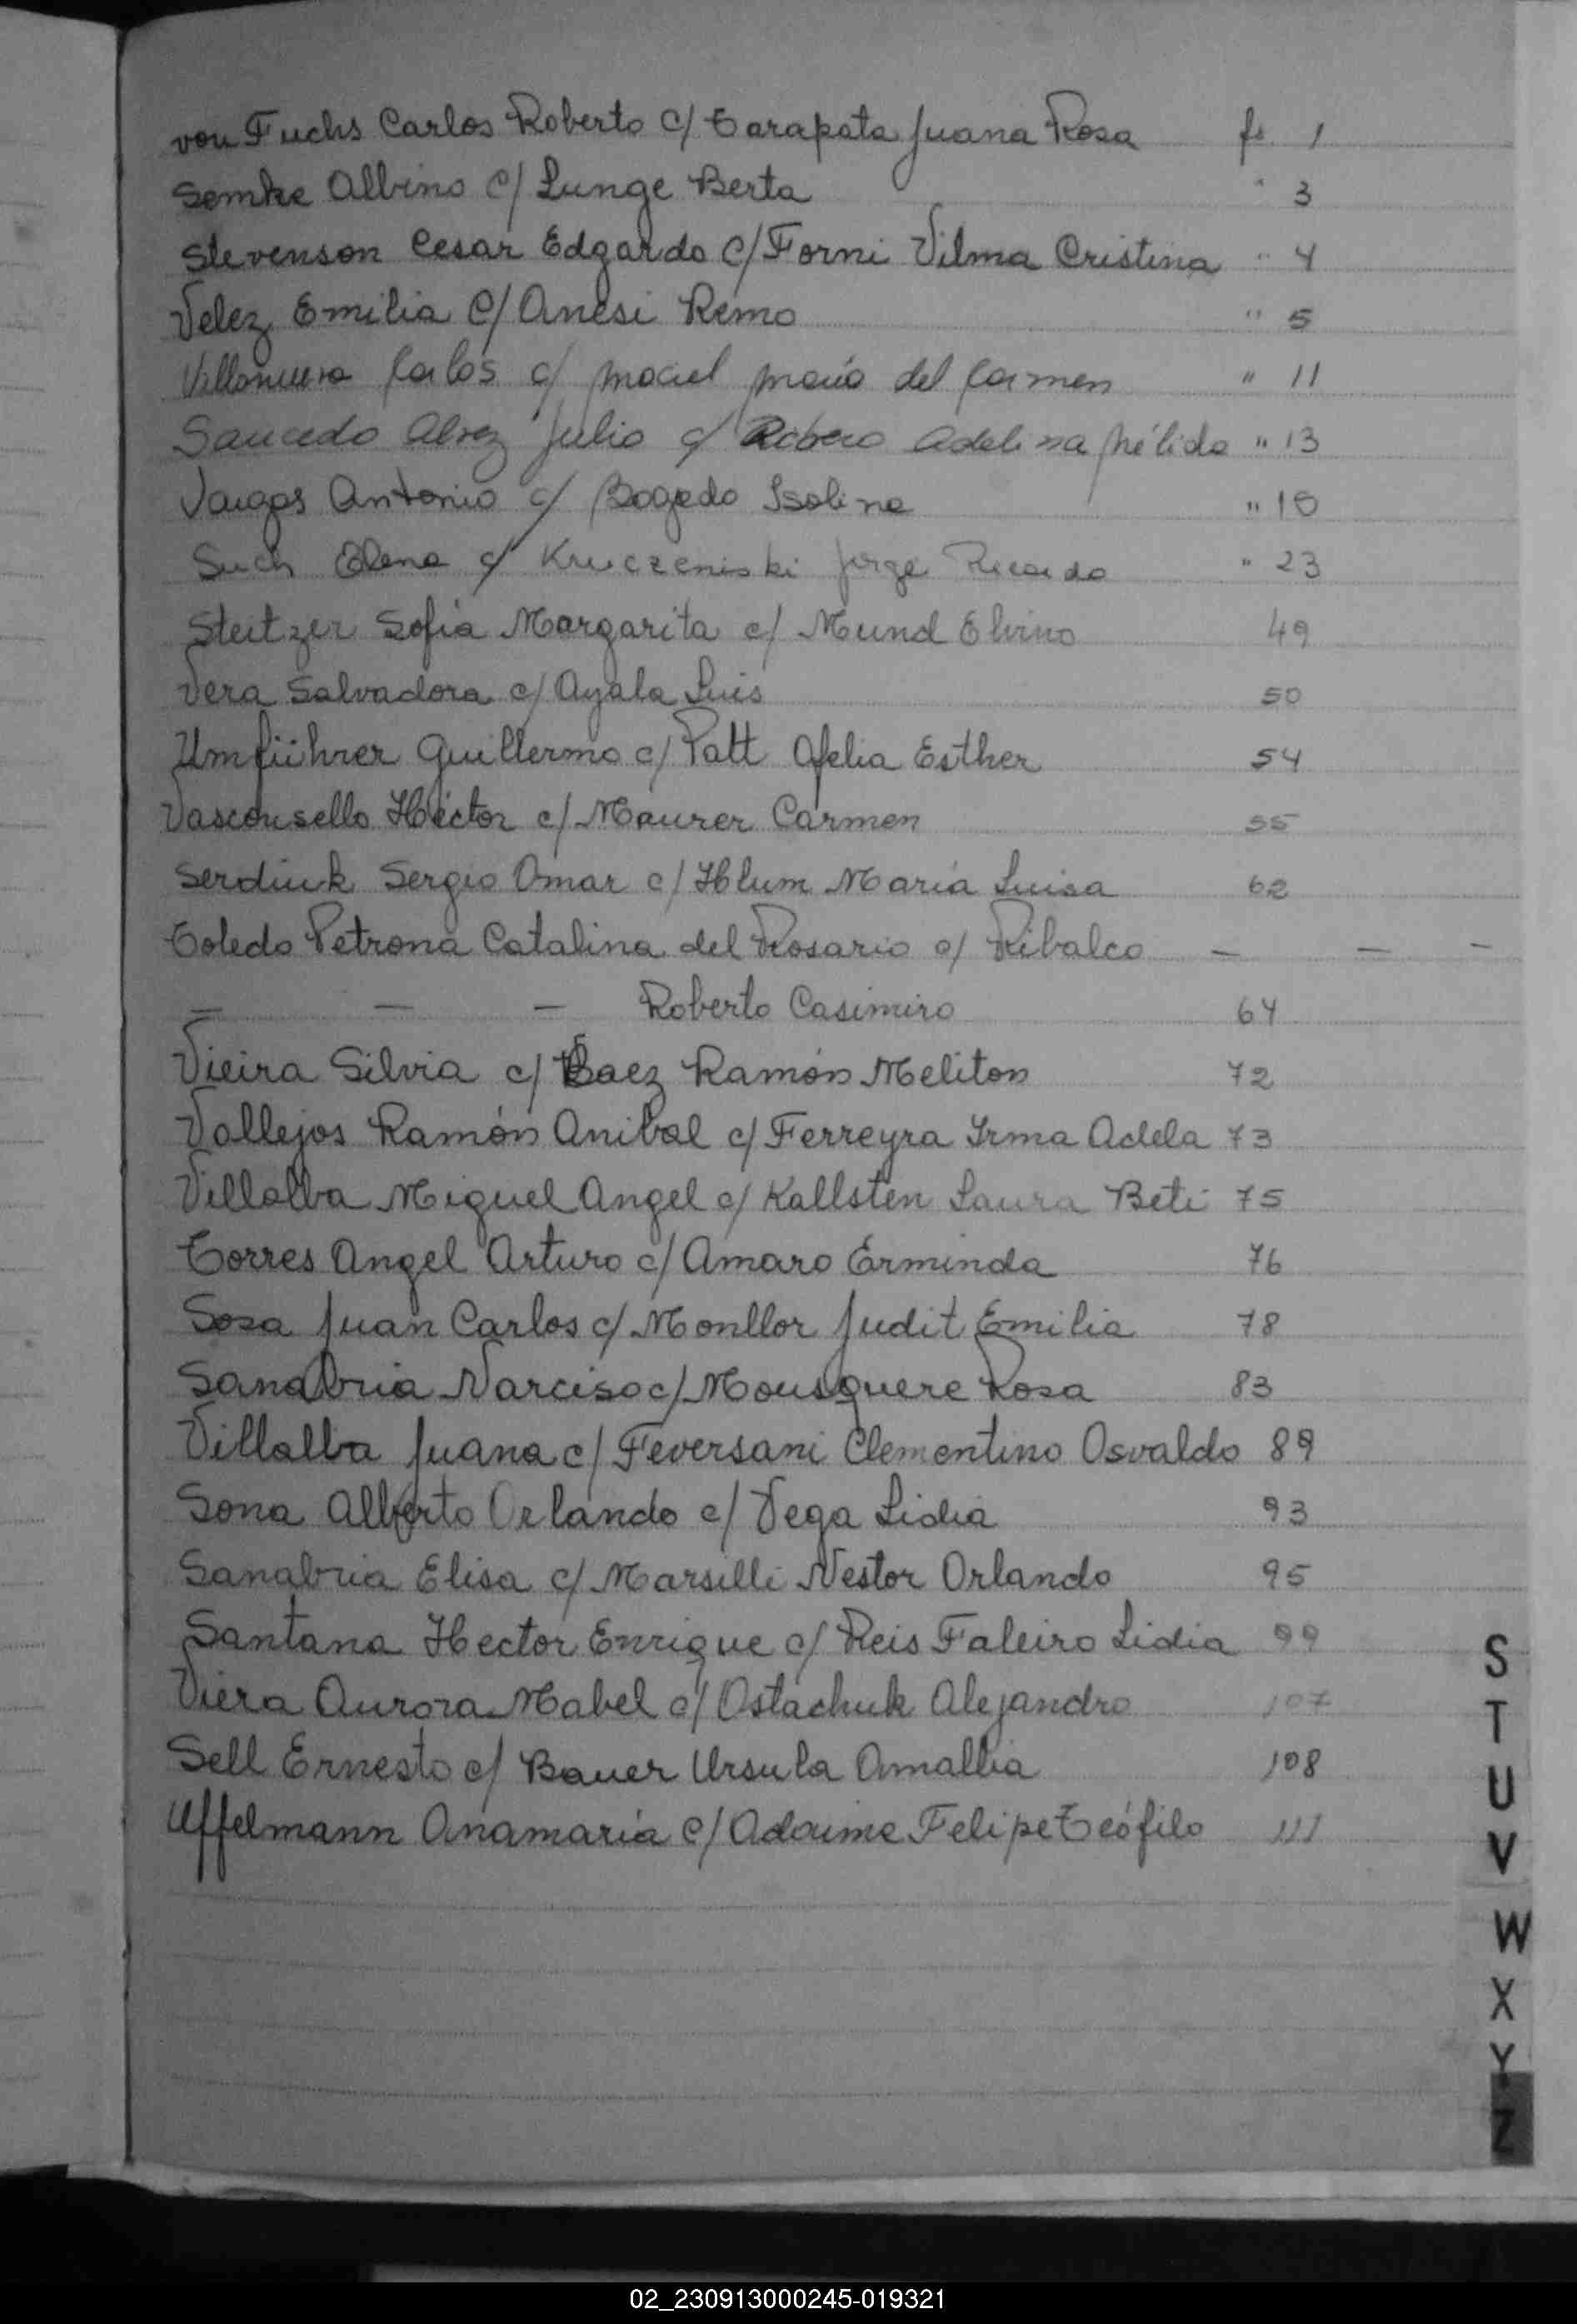 von Fuchs Carlos Roberto c/ Tarapata Juana Rosa fs. 1
Semke Albino c/ Lunge Berta " 3
Stevenson Cesar Edgardo c/ Forni Vilma Cristina " 4
Velez Emilia c/ Anesi Remo " 5
Villanueva Carlos c/ Maciel María del Carmen " 11
Saucedo Alvez Julio c/ Ribero Adelina Nélida " 13
Vargas Antonio c/ Bogado Isolina " 15
Such Elena c/ Kruczeniski Jorge Ricardo " 23
Steitzer Sofía Margarita c/ Mund Elvino 49
Vera Salvadora c/ Ayala Luis 50
Umführer Guillermo c/ Patt Ofelia Esther 54
Vasconsello Héctor c/ Maurer Carmen 55
Serdiuk Sergio Omar c/ Hlum María Luisa 62
Toledo Petrona Catalina del Rosario c/ Ribalco — — —
— — — Roberto Casimiro 64
Vieira Silvia c/ Baez Ramón Meliton 72
Vallejos Ramón Anibal c/ Ferreyra Irma Adela 73
Villalba Miguel Angel c/ Kallsten Laura Beti 75
Torres Angel Arturo c/ Amaro Erminda 76
Sosa Juan Carlos c/ Monllor Judit Emilia 78
Sanabria Narciso c/ Mousquere Rosa 83
Villalba Juana c/ Feversani Clementino Osvaldo 89
Sona Alberto Orlando c/ Vega Lidia 93
Sanabria Elisa c/ Marsilli Nestor Orlando 95
Santana Hector Enrique c/ Reis Faleiro Lidia 99
Viera Aurora Mabel c/ Ostachuk Alejandro 107
Sell Ernesto c/ Bauer Ursula Amallia 108
Uffelmann Anamaría c/ Adaime Felipe Teófilo 111
S
T
U
V
W
X
Y
Z
02_230913000245-019321